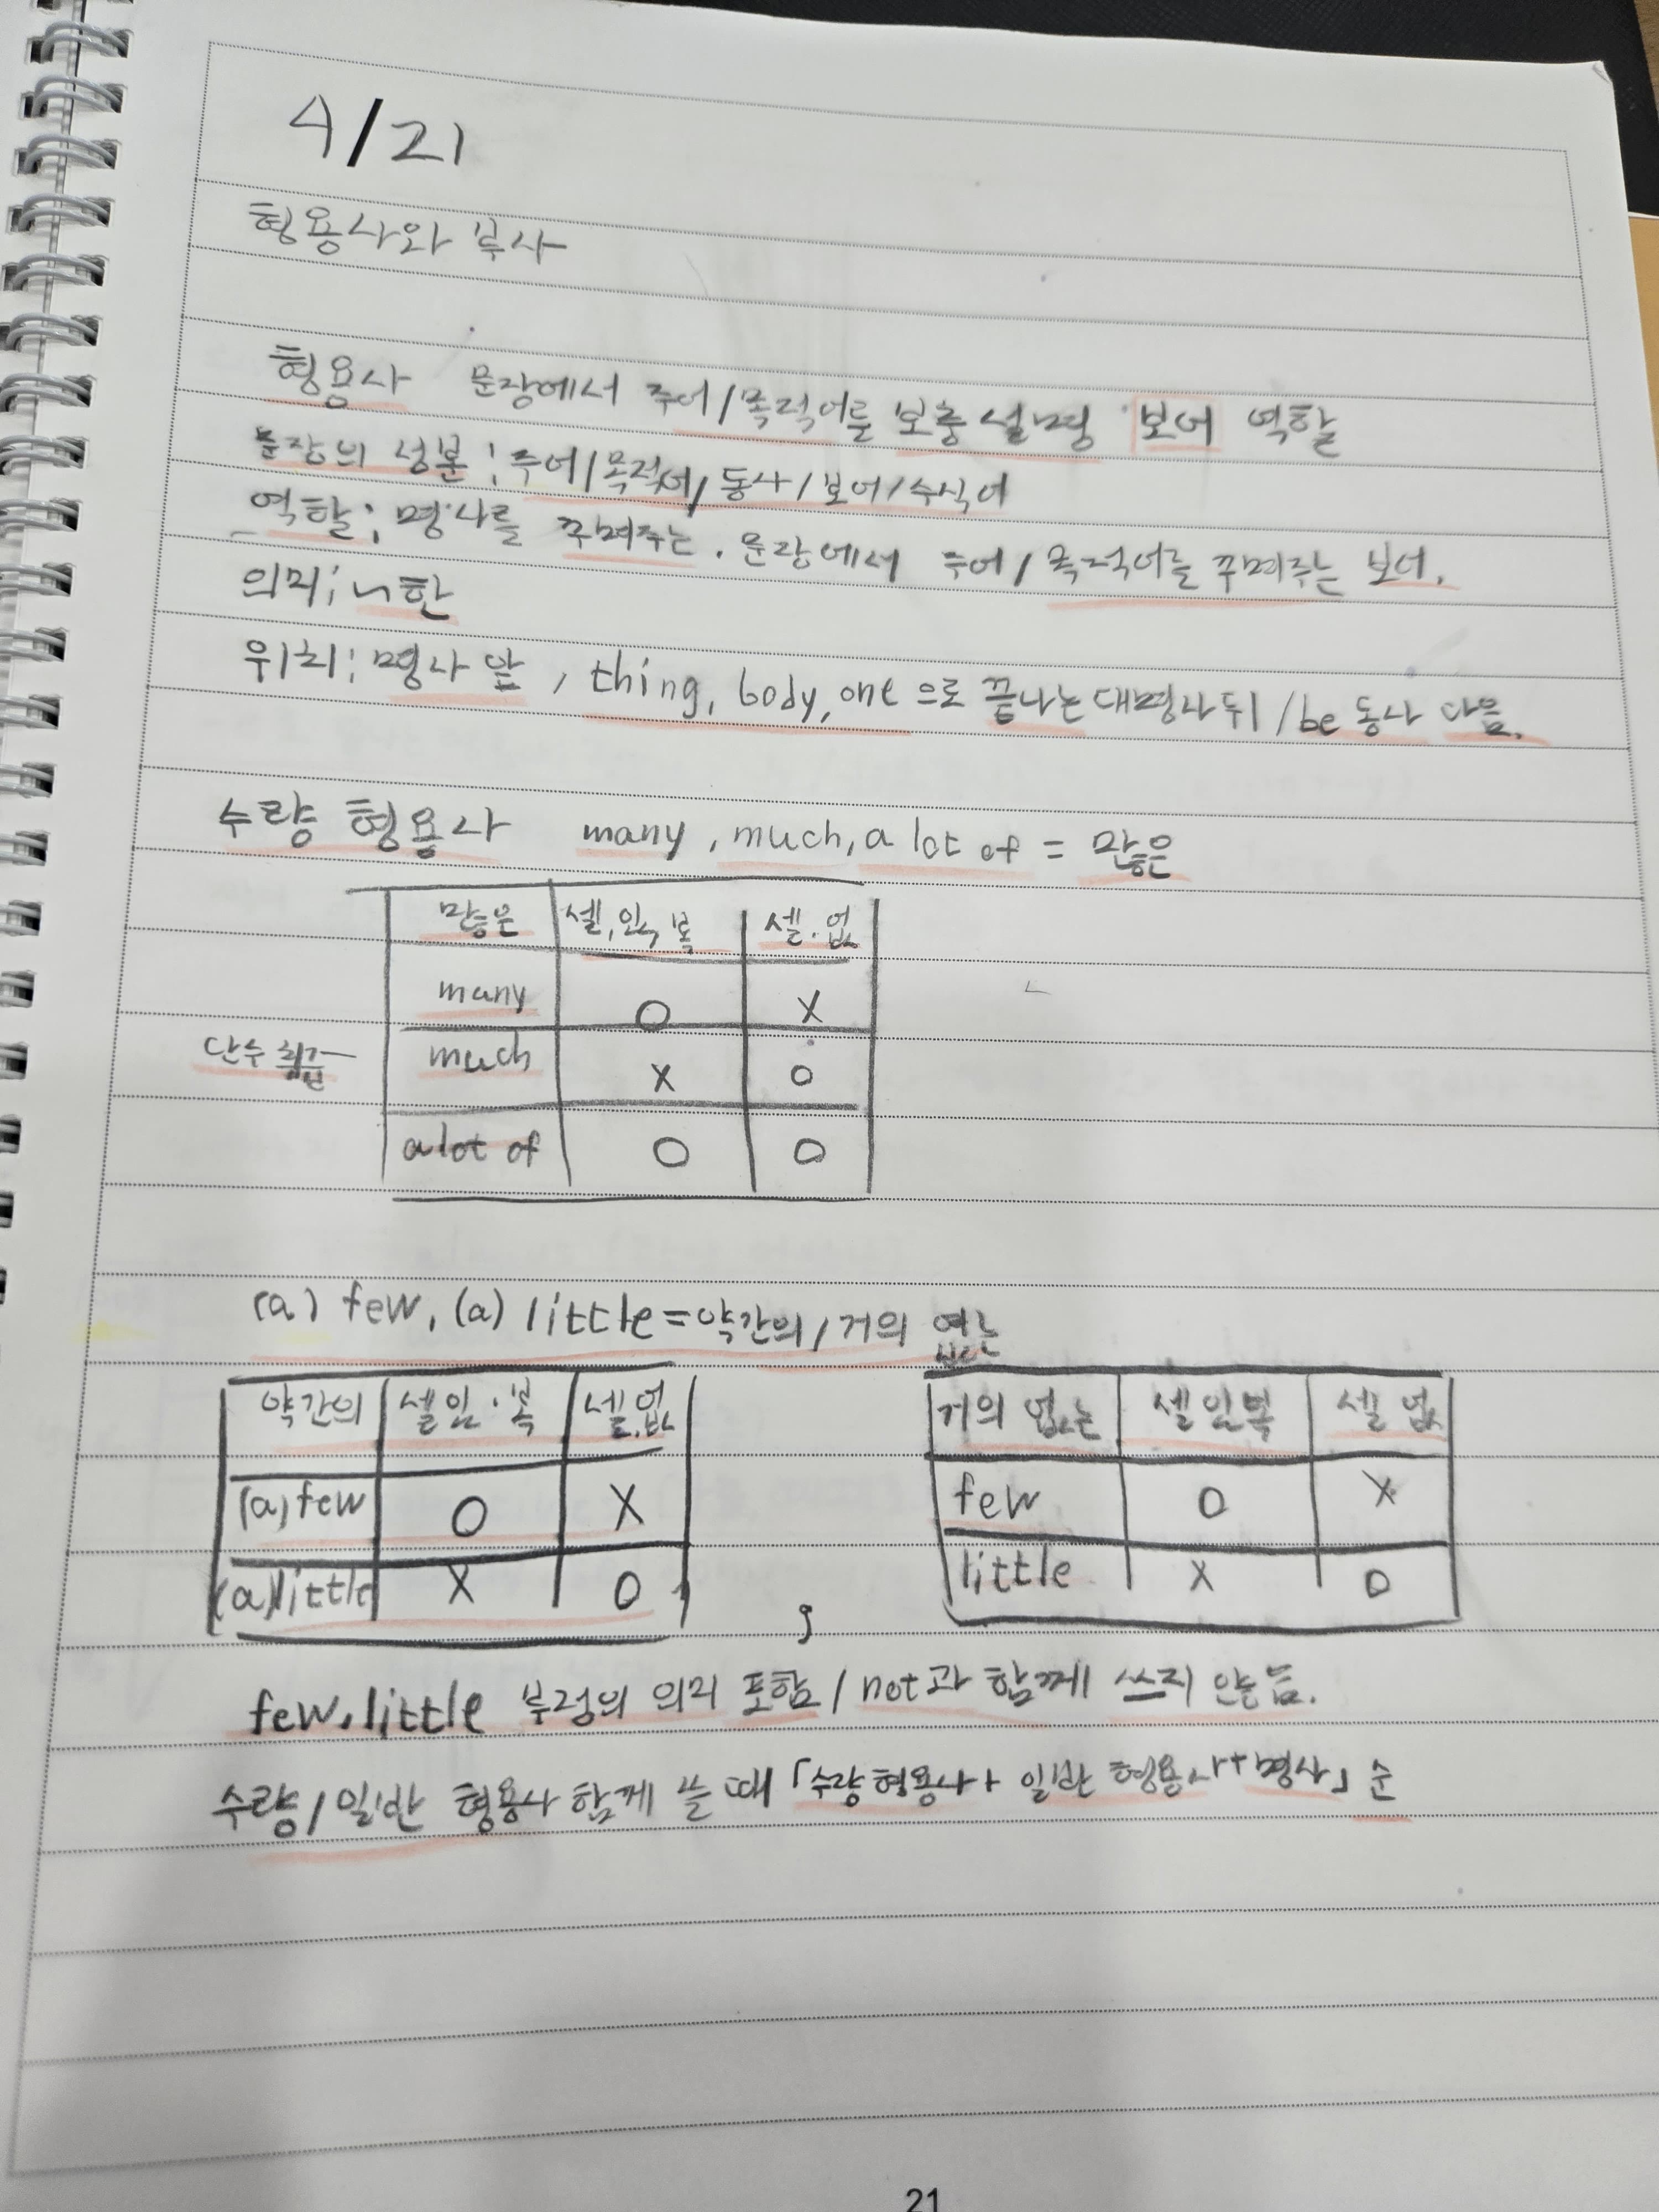 4/21
형용사와 부사
형용사 문장에서 주어/목적어를 보충 설명 보어 역할
문장의 성분: 주어/목적어/동사/보어/수식어
역할; 명사를 꾸며주는. 문장에서 주어/목적어를 꾸며주는 보어.
의미; ㄴ한
위치: 명사 앞, thing, body, one 으로 끝나는 대명사 뒤/be 동사 다음.
수량 형용사 many, much, a lot of = 많은
많은 셀,있,복 셀.없
many O X
단수 취급 much X O
a lot of O O
(a) few, (a) little=약간의/거의 없는
약간의 셀있.복 셀.없
(a) few O X
(a) little X O
거의 없는 셀있복 셀 없
few O X
little X O
few, little 부정의 의미 포함/not과 함께 쓰지 않음.
수량/일반 형용사 함께 쓸 때 「수량형용사+ 일반 형용사+명사」 순
21